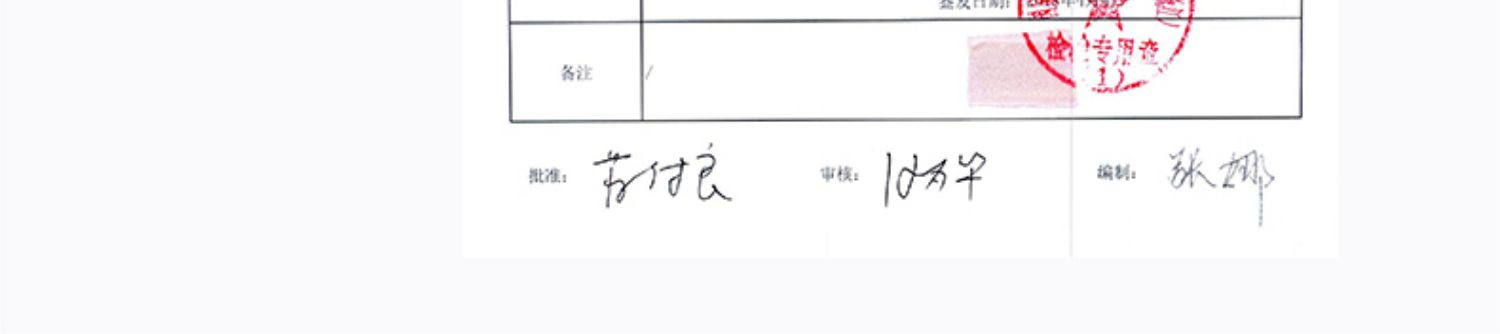 签发日期:
备注 /
检 专用章
(1)
批准: 苏付良 审核: 编制: 张娜